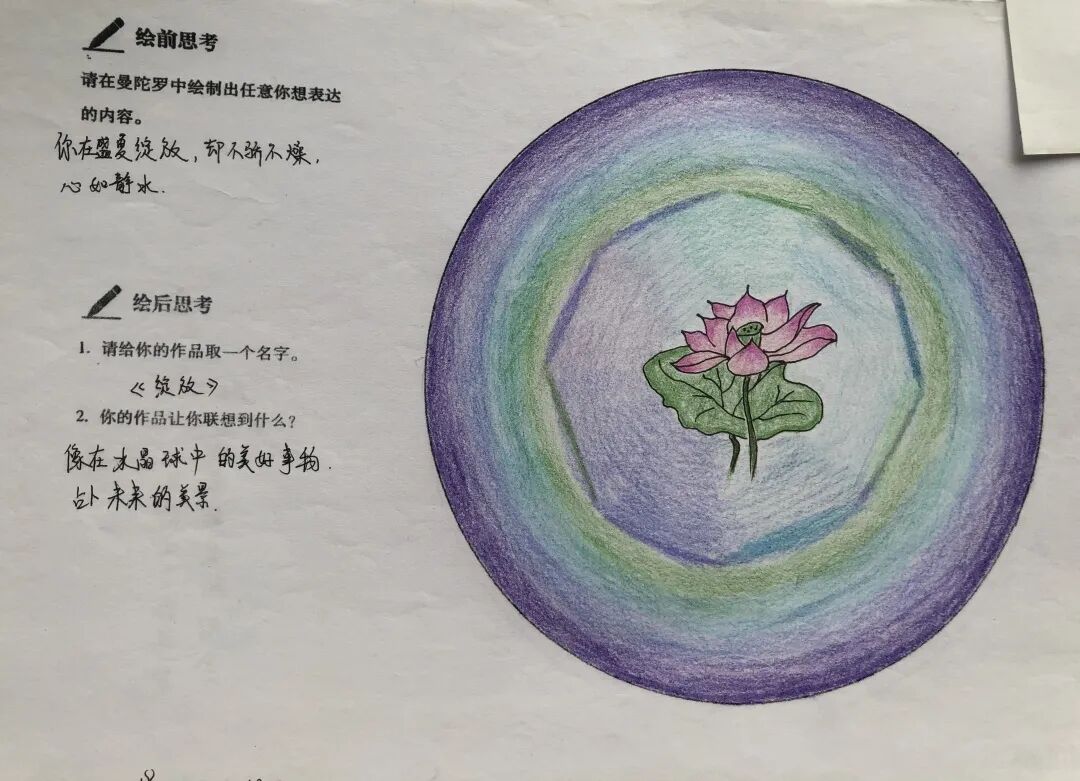 绘前思考
请在曼陀罗中绘制出任意你想表达
的内容。
你在盛夏绽放，却不骄不燥，
心如静水.
绘后思考
1. 请给你的作品取一个名字。
《绽放》
2. 你的作品让你联想到什么？
像在水晶球中的美好事物.
占卜未来的美景.